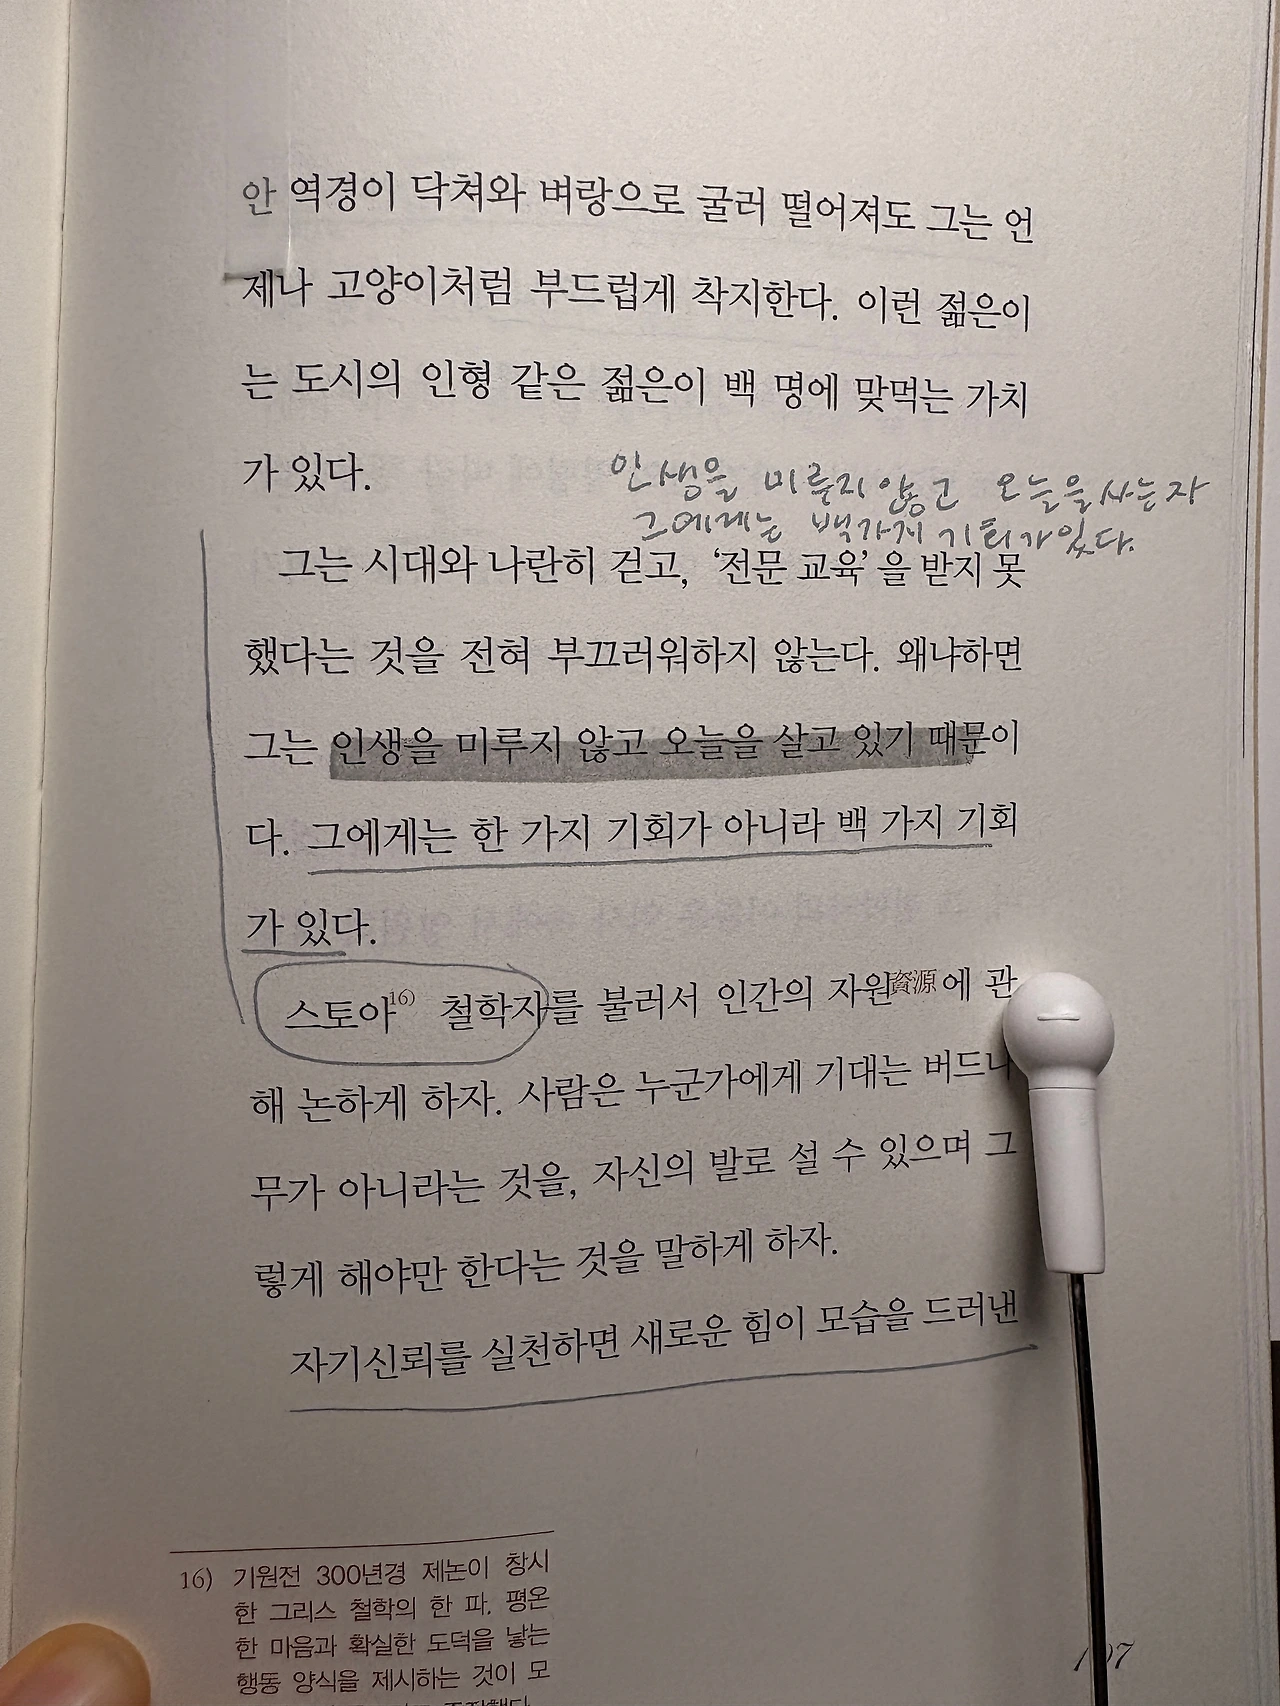 안 역경이 닥쳐와 벼랑으로 굴러 떨어져도 그는 언
제나 고양이처럼 부드럽게 착지한다. 이런 젊은이
는 도시의 인형 같은 젊은이 백 명에 맞먹는 가치
가 있다.
인생을 미루지 않고 오늘을 사는 자
그에게는 백가지 기회가 있다.
그는 시대와 나란히 걷고, ‘전문 교육’을 받지 못
했다는 것을 전혀 부끄러워하지 않는다. 왜냐하면
그는 인생을 미루지 않고 오늘을 살고 있기 때문이
다. 그에게는 한 가지 기회가 아니라 백 가지 기회
가 있다.
스토아16) 철학자를 불러서 인간의 자원資源에 관
해 논하게 하자. 사람은 누군가에게 기대는 버드나
무가 아니라는 것을, 자신의 발로 설 수 있으며 그
렇게 해야만 한다는 것을 말하게 하자.
자기신뢰를 실천하면 새로운 힘이 모습을 드러낸
16) 기원전 300년경 제논이 창시
한 그리스 철학의 한 파. 평온
한 마음과 확실한 도덕을 낳는
행동 양식을 제시하는 것이 모